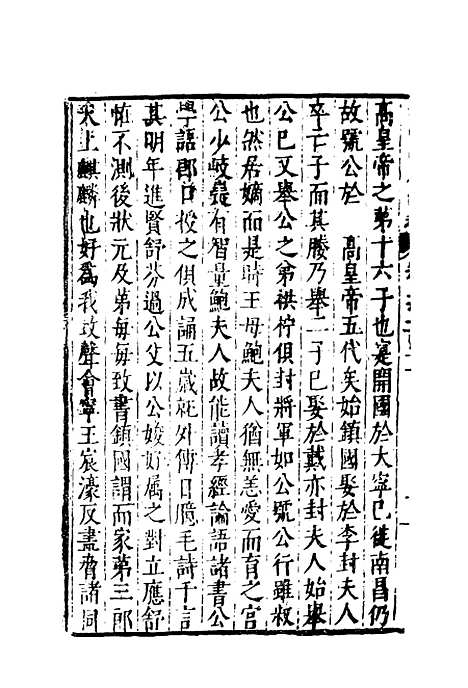 高皇帝之第十六子也寔開國於大寧已徙南昌仍
故號公於　高皇帝五代矣始鎮國娶於李封夫人
卒亡子而其媵乃舉二子已娶於戴亦封夫人始舉
公已又舉公之弟拱柠俱封將軍如公號公行雖叔
也然居嫡而是時王母鮑夫人猶無恙愛而育之宮
公少岐嶷有智量鮑夫人故能讀孝經論語諸書公
學語郡口授之俱成誦五歲就外傅日臆毛詩千言
其明年進賢舒芬過公父以公姣好屬之對立應舒
恠不測後狀元及第每每致書鎮國謂而家第三郎
天上麒麟也好爲我致聲會寧王宸濠反盡脅諸同